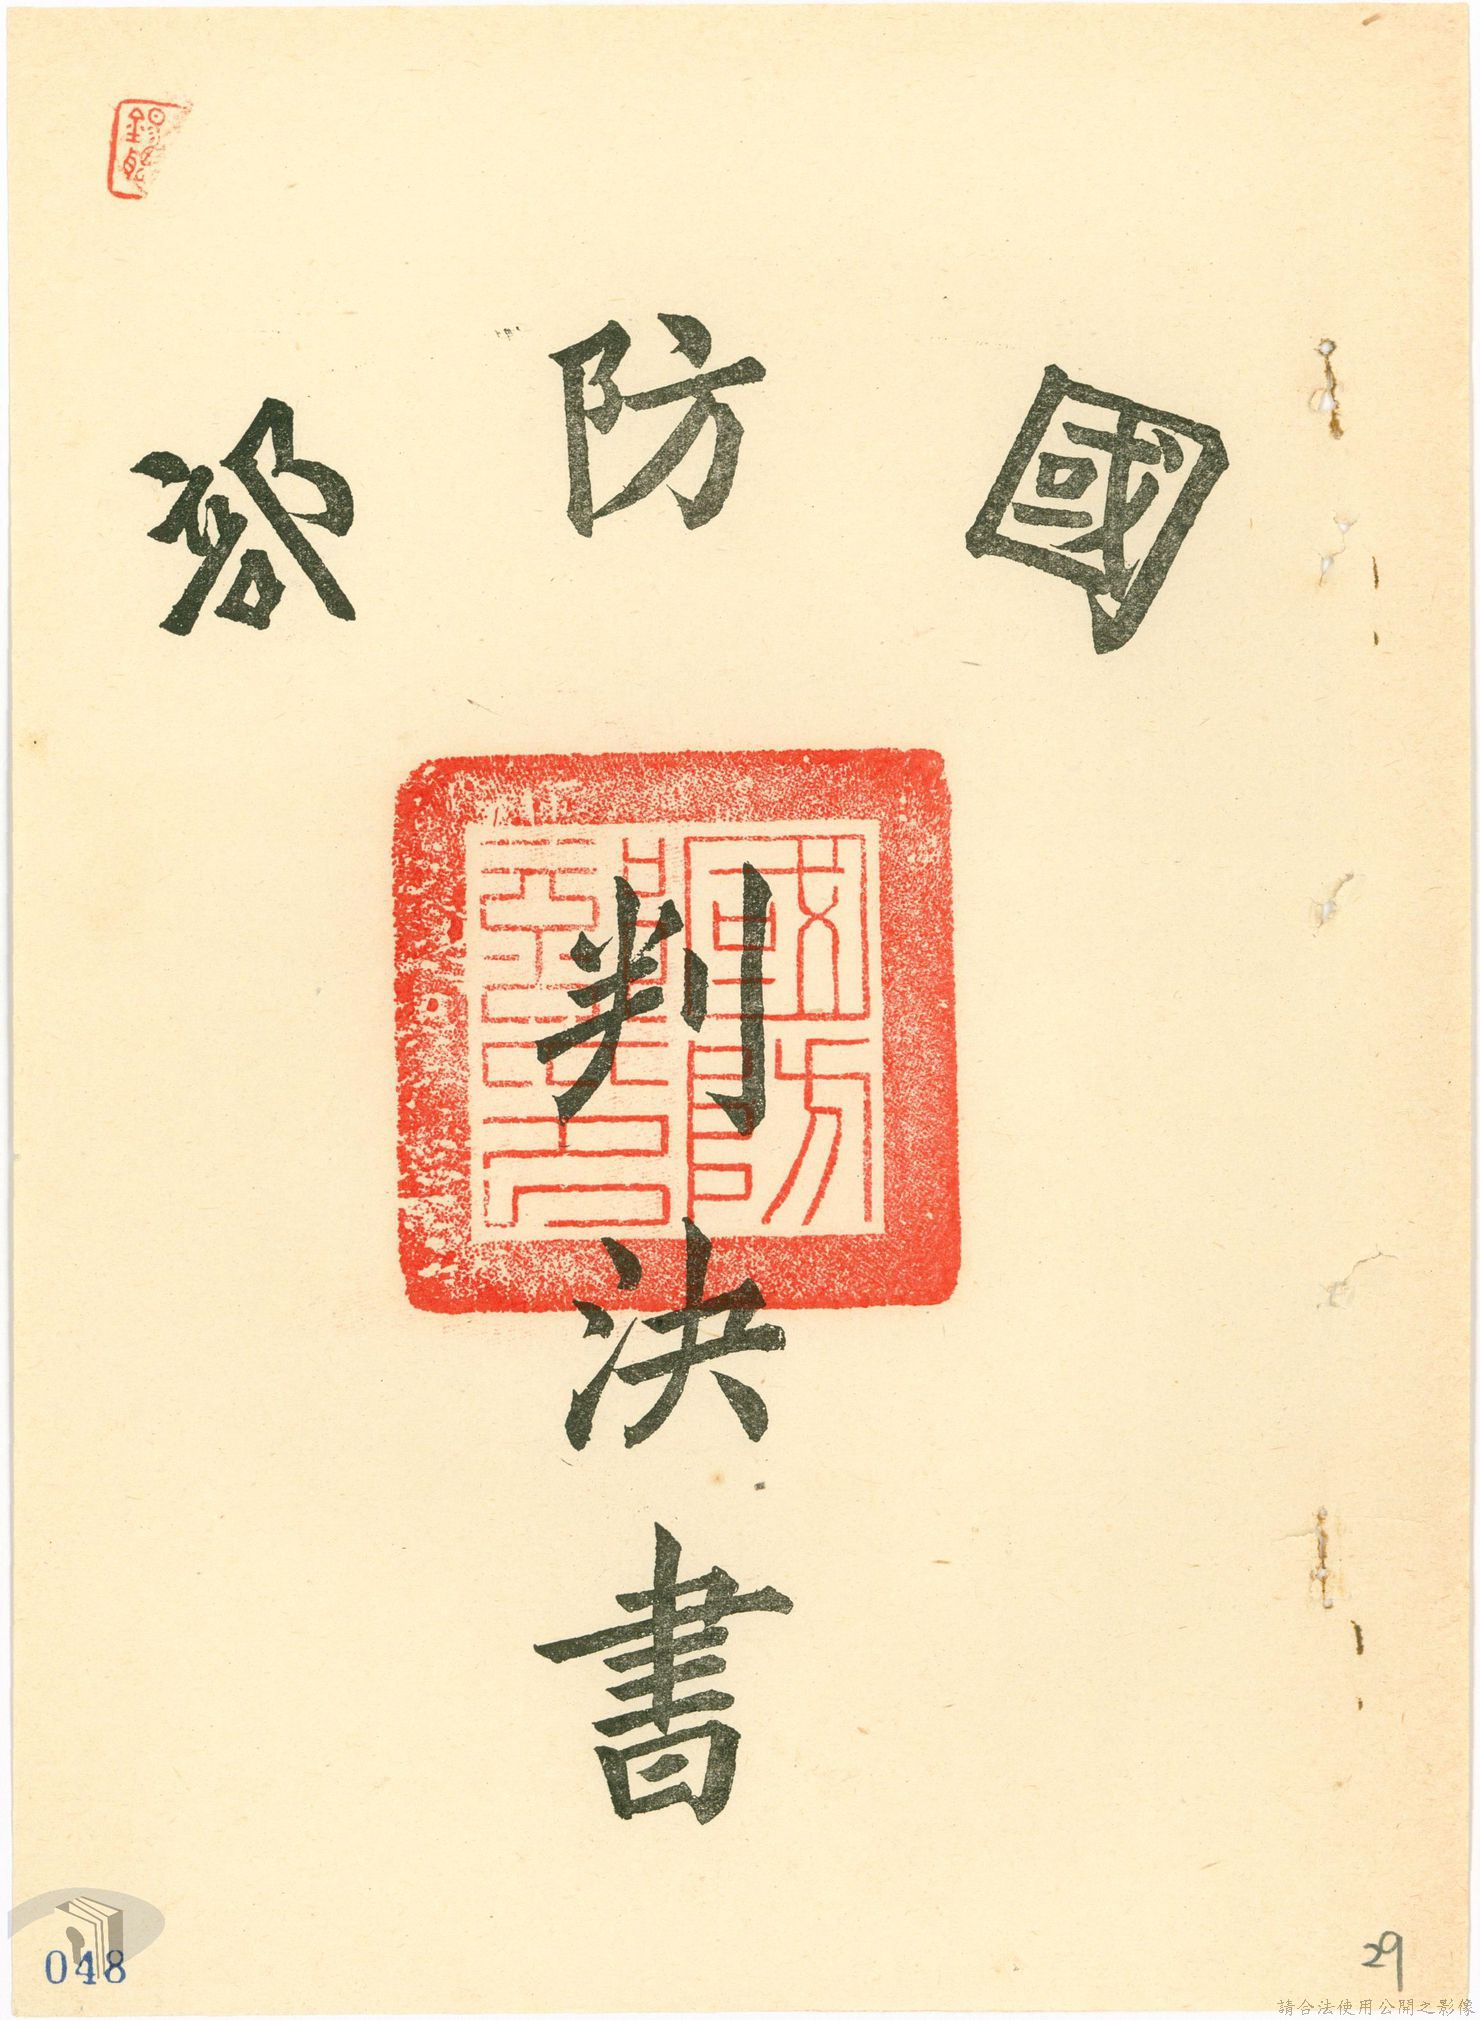 國防部
判決書
國防部印
048
29
請合法使用公開之影像